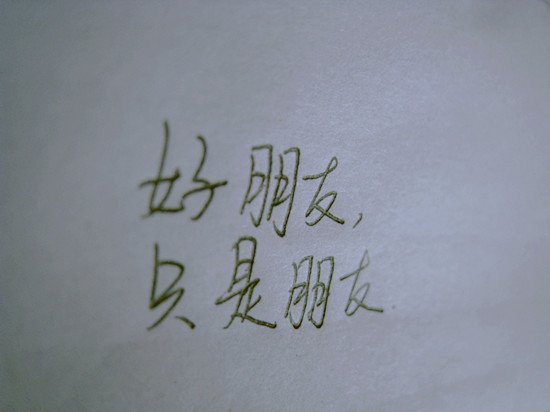 好朋友,
只是朋友.